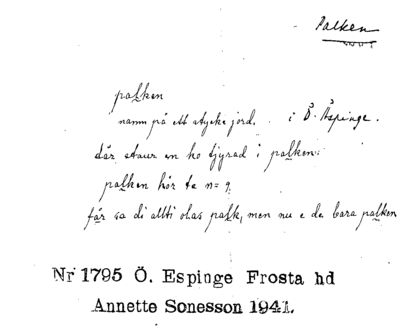 Palken
palken
namn på ett stycke jord. i Ö. Äspinge.
där staur en ko tjyrad i palken:
palken hör te n= 9.
får sa di allti ohas palk, men nu e de bara palken
Nr 1795 Ö. Espinge Frosta hd
Annette Sonesson 1941.